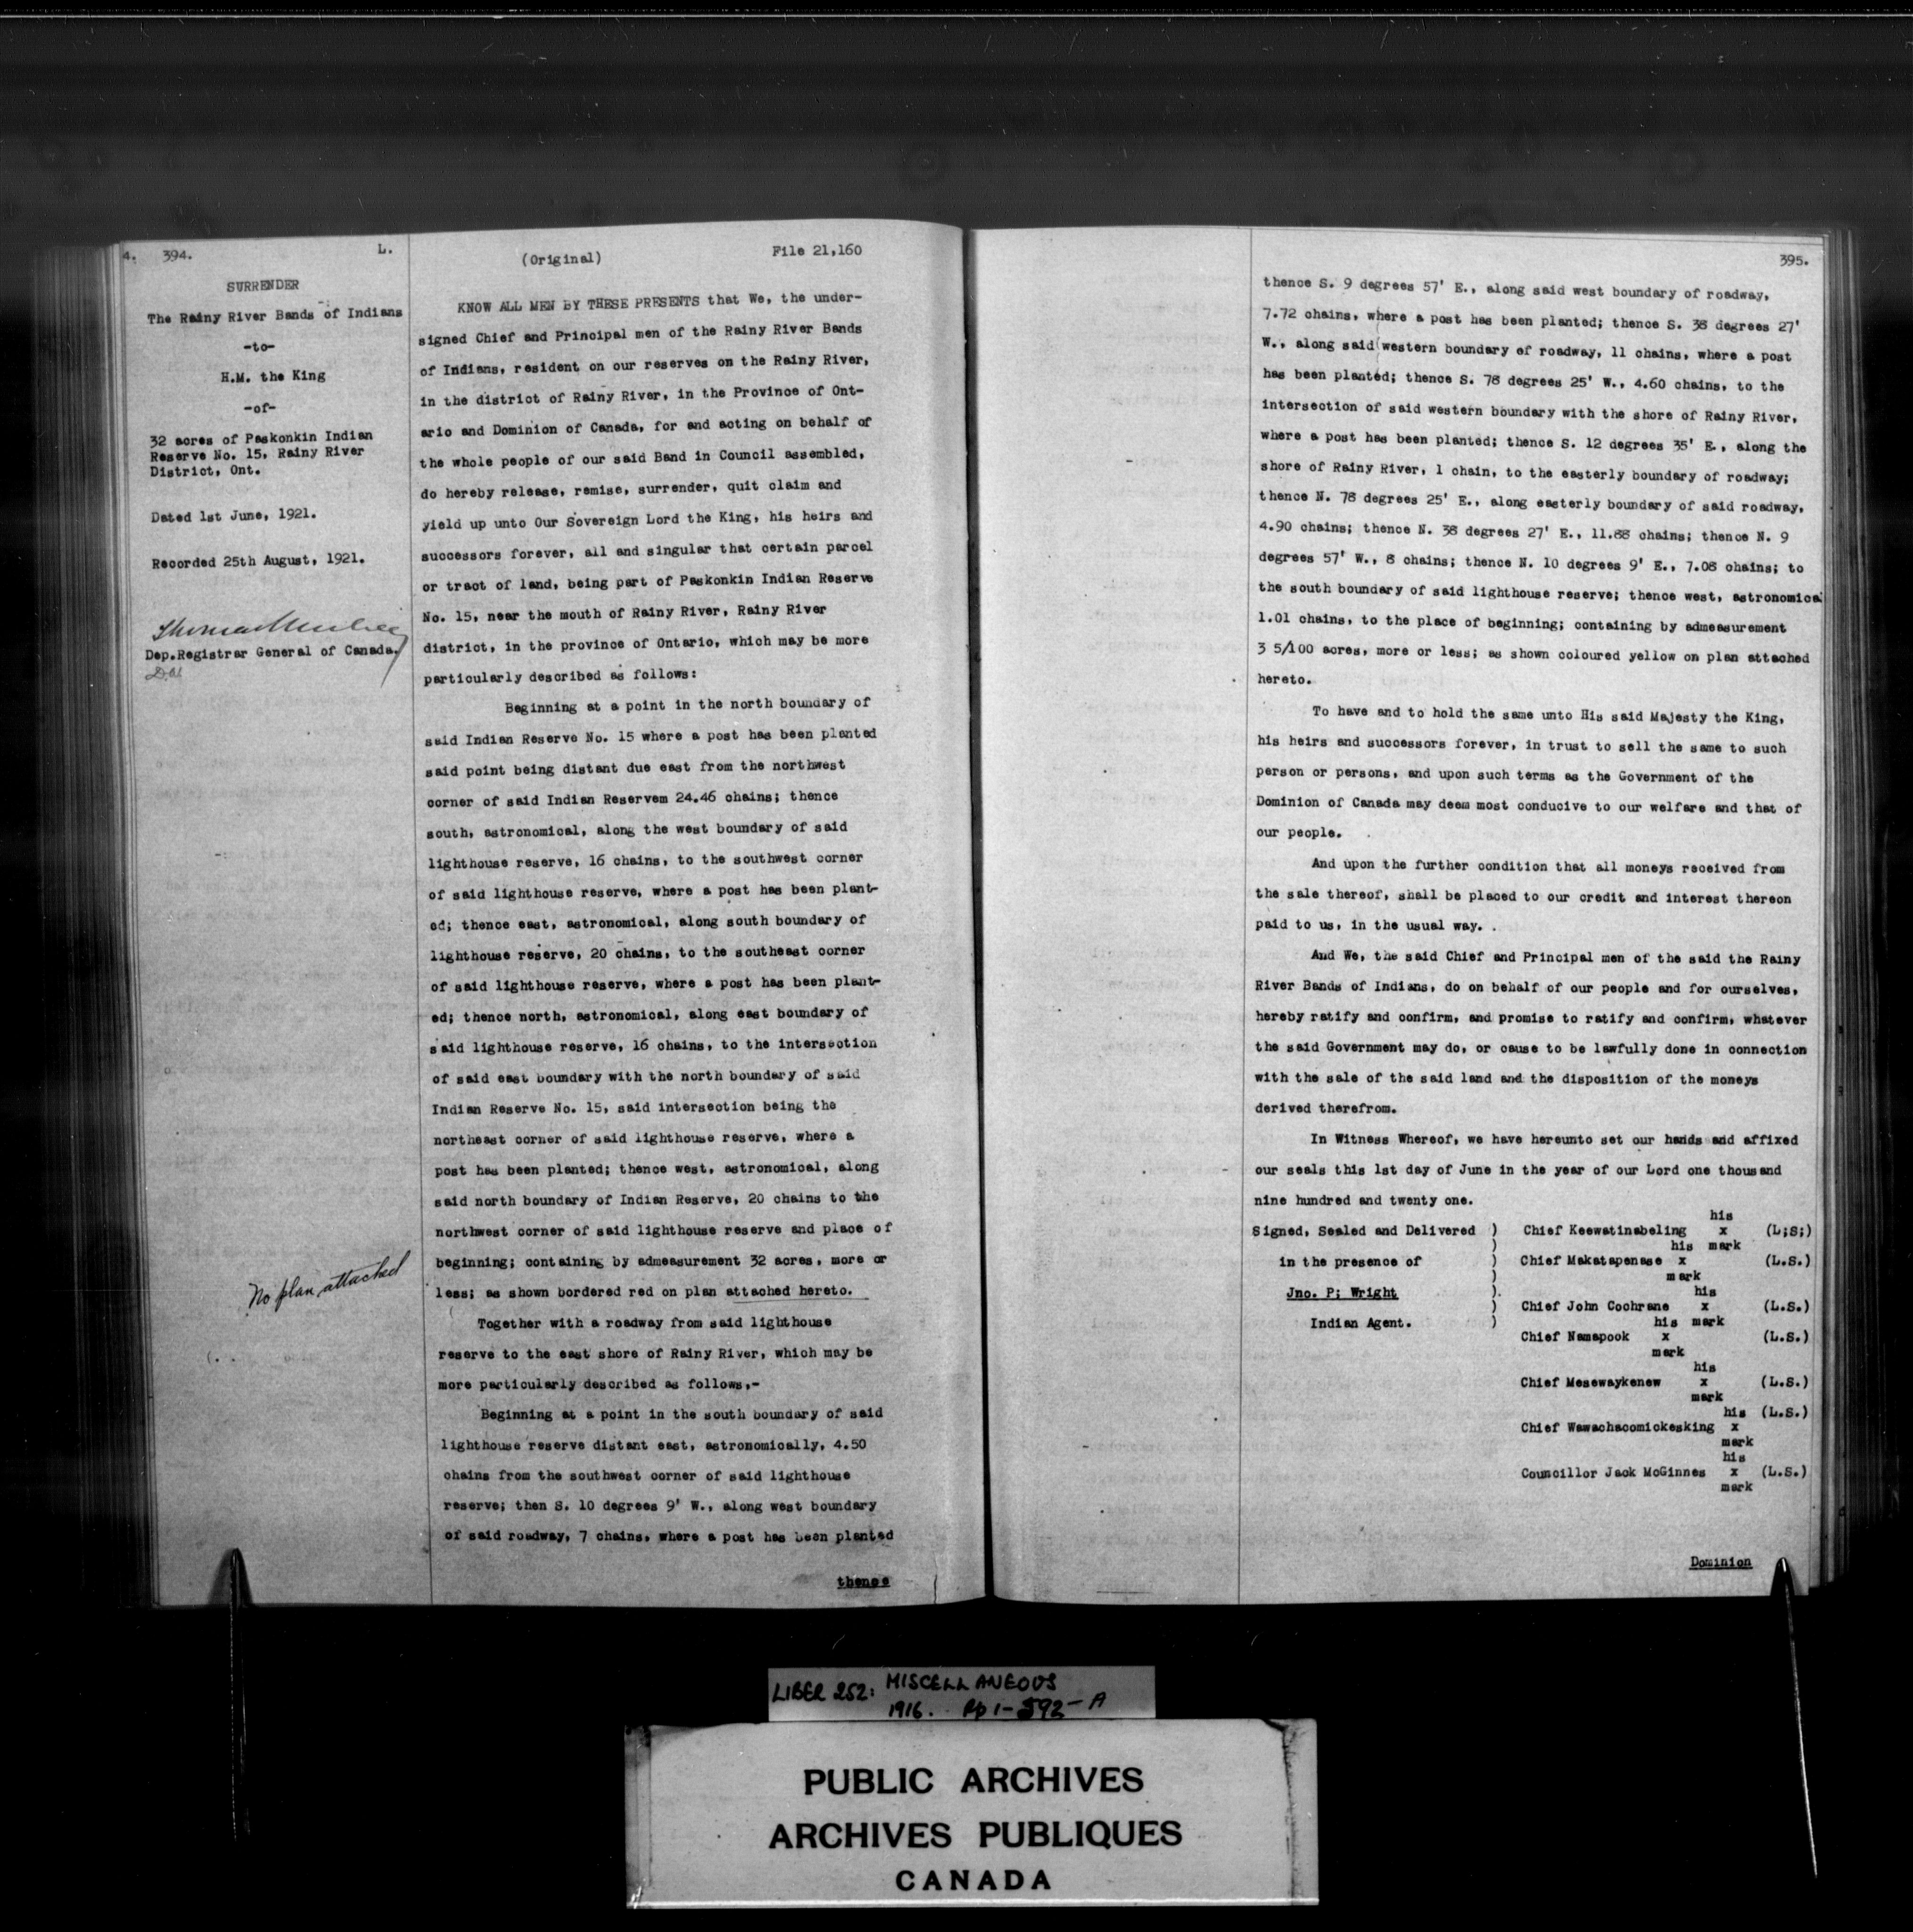 4. 394. L.
SURRENDER
The Rainy River Bands of Indians
-to-
H.M. the King
-of-
32 acres of Paskonkin Indian
Reserve No. 15, Rainy River
District, Ont.
Dated 1st June, 1921.
Recorded 25th August, 1921.
Dep.Registrar General of Canada.
No plan attached
(Original) File 21,160
KNOW ALL MEN BY THESE PRESENTS that We, the under-
signed Chief and Principal men of the Rainy River Bands
of Indians, resident on our reserves on the Rainy River,
in the district of Rainy River, in the Province of Ont-
ario and Dominion of Canada, for and acting on behalf of
the whole people of our said Band in Council assembled,
do hereby release, remise, surrender, quit claim and
yield up unto Our Sovereign Lord the King, his heirs and
successors forever, all and singular that certain parcel
or tract of land, being part of Paskonkin Indian Reserve
No. 15, near the mouth of Rainy River, Rainy River
district, in the province of Ontario, which may be more
particularly described as follows:
Beginning at a point in the north boundary of
said Indian Reserve No. 15 where a post has been planted
said point being distant due east from the northwest
corner of said Indian Reservem 24.46 chains; thence
south, astronomical, along the west boundary of said
lighthouse reserve, 16 chains, to the southwest corner
of said lighthouse reserve, where a post has been plant-
ed; thence east, astronomical, along south boundary of
lighthouse reserve, 20 chains, to the southeast corner
of said lighthouse reserve, where a post has been plant-
ed; thence north, astronomical, along east boundary of
said lighthouse reserve, 16 chains, to the intersection
of said east boundary with the north boundary of said
Indian Reserve No. 15, said intersection being the
northeast corner of said lighthouse reserve, where a
post has been planted; thence west, astronomical, along
said north boundary of Indian Reserve, 20 chains to the
northwest corner of said lighthouse reserve and place of
beginning; containing by admeasurement 32 acres, more or
less; as shown bordered red on plan attached hereto.
Together with a roadway from said lighthouse
reserve to the east shore of Rainy River, which may be
more particularly described as follows,-
Beginning at a point in the south boundary of said
lighthouse reserve distant east, astronomically, 4.50
chains from the southwest corner of said lighthouse
reserve; then S. 10 degrees 9' W., along west boundary
of said roadway, 7 chains, where a post has been planted
thence
395.
thence S. 9 degrees 57' E., along said west boundary of roadway,
7.72 chains, where a post has been planted; thence S. 38 degrees 27'
W., along said western boundary of roadway, 11 chains, where a post
has been planted; thence S. 78 degrees 25' W., 4.60 chains, to the
intersection of said western boundary with the shore of Rainy River,
where a post has been planted; thence S. 12 degrees 35' E., along the
shore of Rainy River, 1 chain, to the easterly boundary of roadway;
thence N. 78 degrees 25' E., along easterly boundary of said roadway,
4.90 chains; thence N. 38 degrees 27' E., 11.88 chains; thence N. 9
degrees 57' W., 8 chains; thence N. 10 degrees 9' E., 7.08 chains; to
the south boundary of said lighthouse reserve; thence west, astronomical
1.01 chains, to the place of beginning; containing by admeasurement
3 5/100 acres, more or less; as shown coloured yellow on plan attached
hereto.
To have and to hold the same unto His said Majesty the King,
his heirs and successors forever, in trust to sell the same to such
person or persons, and upon such terms as the Government of the
Dominion of Canada may deem most conducive to our welfare and that of
our people.
And upon the further condition that all moneys received from
the sale thereof, shall be placed to our credit and interest thereon
paid to us, in the usual way.
And We, the said Chief and Principal men of the said the Rainy
River Bands of Indians, do on behalf of our people and for ourselves,
hereby ratify and confirm, and promise to ratify and confirm, whatever
the said Government may do, or cause to be lawfully done in connection
with the sale of the said land and the disposition of the moneys
derived therefrom.
In Witness Whereof, we have hereunto set our hands and affixed
our seals this 1st day of June in the year of our Lord one thousand
nine hundred and twenty one.
his
Signed, Sealed and Delivered ) Chief Keewatinabeling x (L;S;)
) his mark
in the presence of ) Chief Makatapenase x (L.S.)
) mark
Jno. P; Wright ). his
) Chief John Cochrane x (L.S.)
Indian Agent. ) his mark
Chief Namapook x (L.S.)
mark
his
Chief Mesewaykenew x (L.S.)
mark
his (L.S.)
Chief Wawachacomickesking x
mark
his
Councillor Jack McGinnes x (L.S.)
mark
Dominion
LIBER 252: MISCELLANEOUS
1916. Pp 1-592-A
PUBLIC ARCHIVES
ARCHIVES PUBLIQUES
CANADA